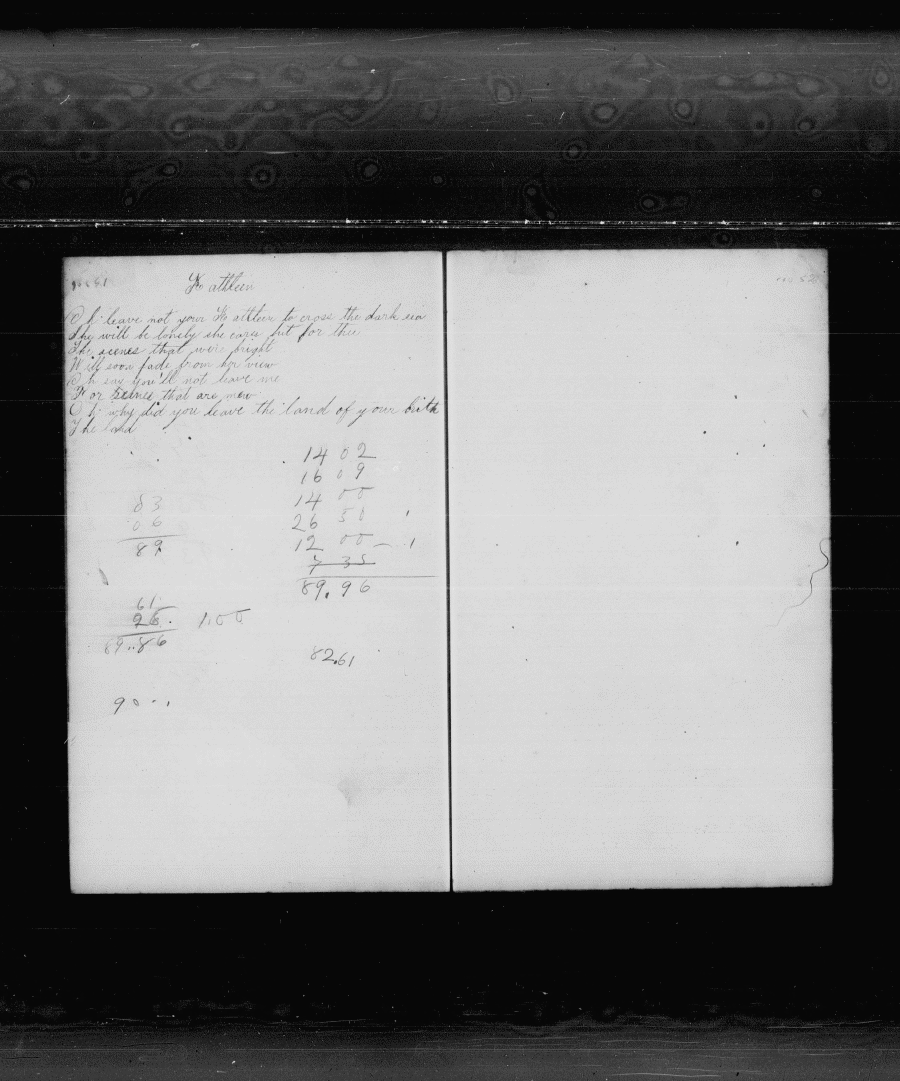 Kathleen
Oh leave not your Kathleen to cross the dark sea
She will be lonely she cares but for thee
The scenes that were bright
Will soon fade from her view
Oh say you'll not leave me
For scenes that are new
Oh why did you leave the land of your birth
The land
14 02
16 09
14 00
26 50
12 00 - 1
7 35
89.96
83
06
89
61
26.
1.00
89..86
82.61
90